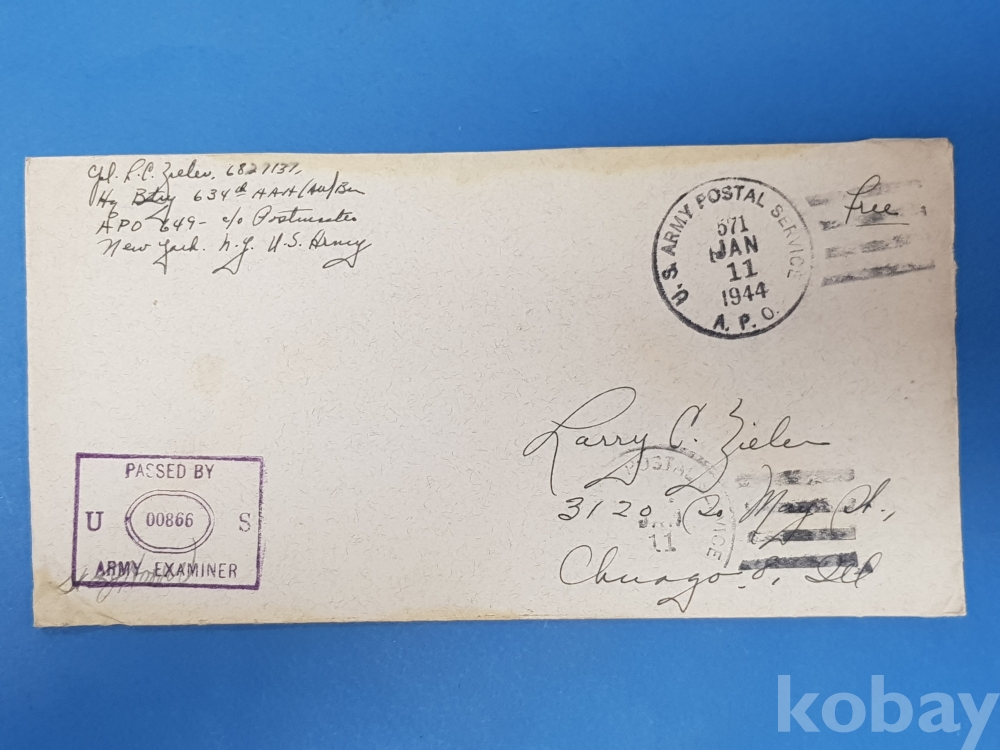 Cpl. L. C. Zielen, 6827137,
Hq Btry 634th AAA (AW) Bn
APO 649 - c/o Postmaster
New York. N.Y. U.S. Army
U.S. ARMY POSTAL SERVICE
671
JAN
11
1944
A.P.O.
Free
Larry C. Zielen
3120 So May St.,
Chicago, 8, Ill
POSTAL
VICE
JAN
11
PASSED BY
U 00866 S
ARMY EXAMINER
kobay